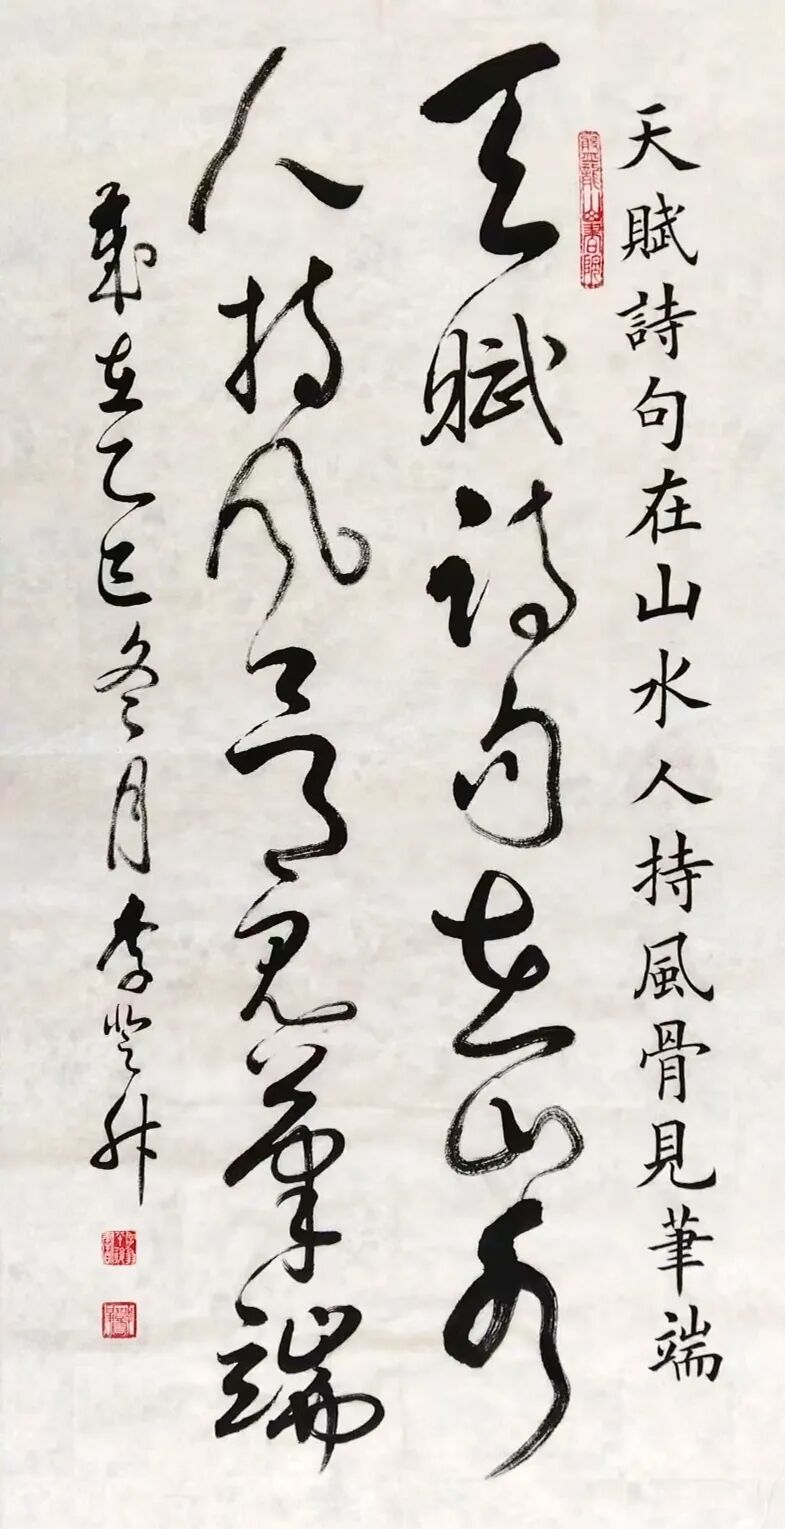 天賦詩句在山水人持風骨見筆端
天賦詩句在山水
人持風骨見筆端
歲在乙巳冬月李登科